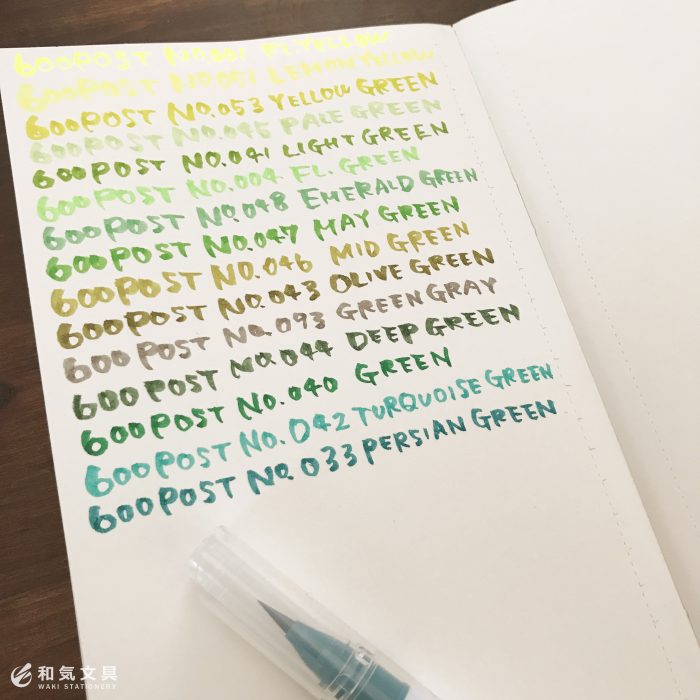 600POST No.001 FL.YELLOW
600POST No.051 LEMONYELLOW
600POST No.053 YELLOW GREEN
600POST No.045 PALE GREEN
600POST No.041 LIGHT GREEN
600POST No.004 FL. GREEN
600POST No.048 EMERALD GREEN
600POST No.047 MAY GREEN
600POST No.046 MID GREEN
600POST No.043 OLIVE GREEN
600POST No.093 GREEN GRAY
600POST No.044 DEEP GREEN
600POST No.040 GREEN
600POST No.042 TURQUOISE GREEN
600POST No.033 PERSIAN GREEN
和気文具
WAKI STATIONERY